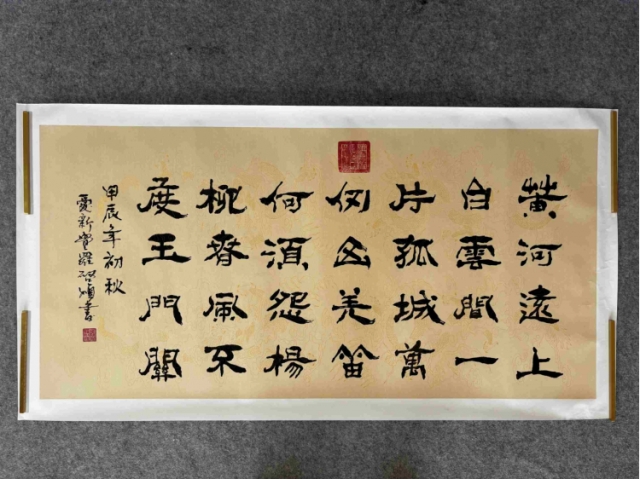 黄河遠上
白雲間一
片孤城萬
仞山羌笛
何須怨楊
柳春風不
度玉門關
甲辰年初秋
愛新覺羅啓頌書